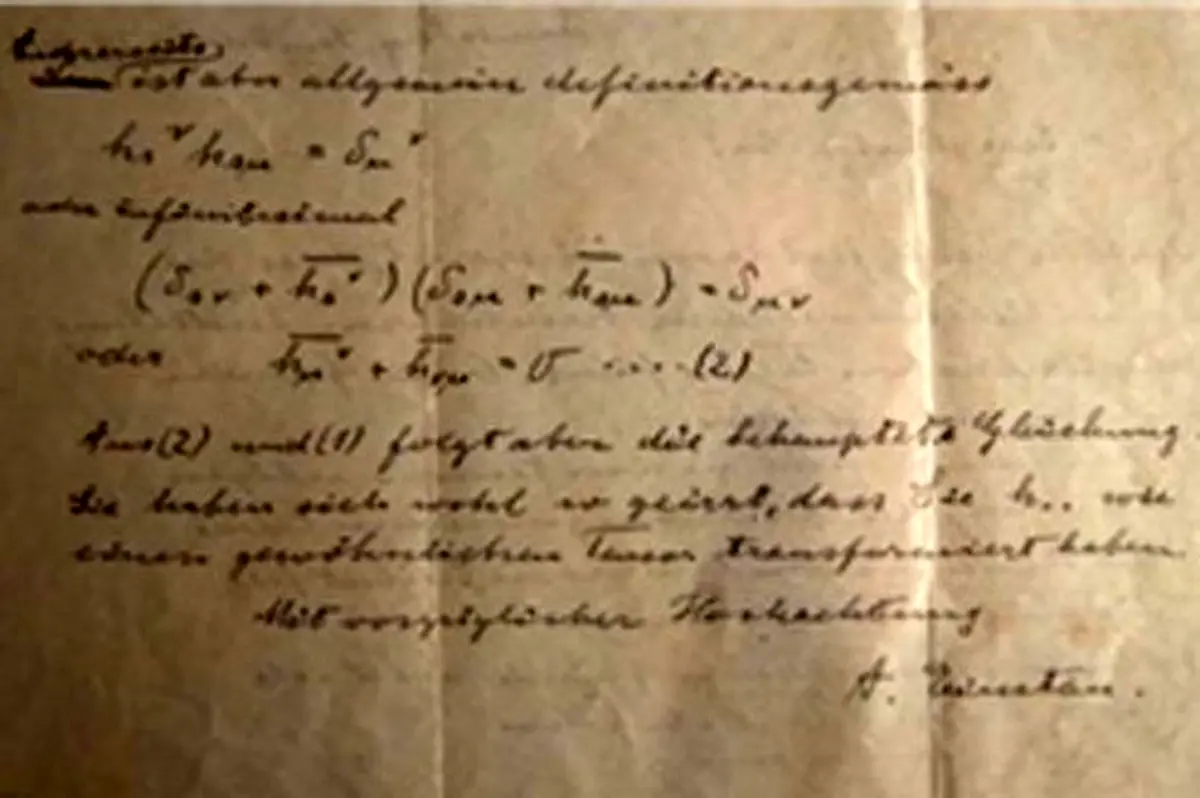 ist aber allgemein definitionsgemäss
hₛ^ν hₛμ = δμ^ν
oder infinitesimal
(δₛν + h̅ₛ^ν) (δₛμ + h̅ₛμ) = δμν
oder h̅μ^ν + h̅νμ = 0 .... (2)
Aus (2) und (1) folgt aber die behauptete Gleichung.
Sie haben sich wohl so geirrt, dass Sie h.. wie
einen gewöhnlichen Tensor transformiert haben
Mit vorzüglicher Hochachtung
A. Einstein.